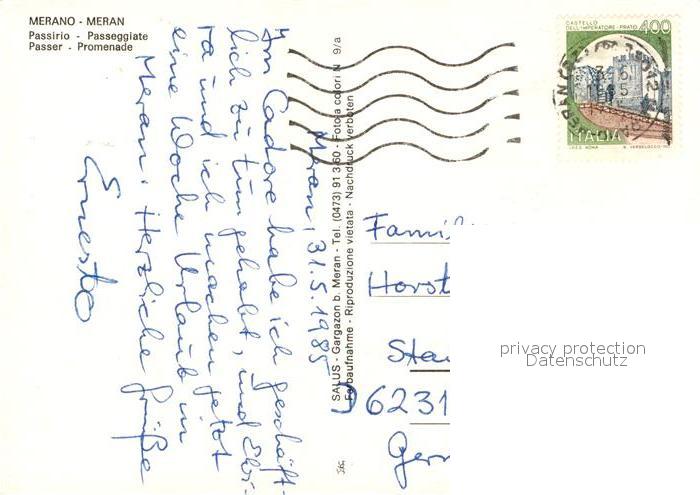 MERANO - MERAN
Passirio - Passeggiate
Passer - Promenade
CASTELLO
DELL'IMPERATORE - PRATO
400
ITALIA
I.P.Z.S. ROMA
SALUS - Gargazon b. Meran - Tel. (0473) 91 3 60 - Foto a colori N. 9/a
Farbaufnahme - Riproduzione vietata - Nachdruck verboten
Meran, 31.5.1985
Im Cadore habe ich geschäft-
lich zu tun gehabt, und Chri-
ta und ich machen jetzt
eine Woche Urlaub in
Meran. Herzliche Grüße
Ernesto
Famil
Horst
Sta
D 6231
Ger
privacy protection
Datenschutz